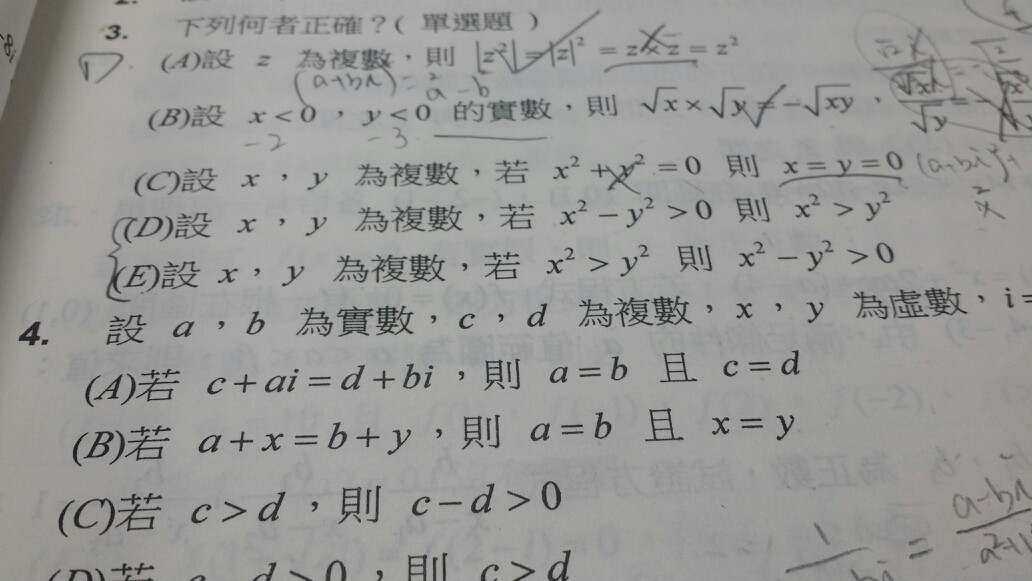 3. 下列何者正確？( 單選題 )
D (A)設 z 為複數，則 |z²|=|z|² = z×z = z²
(a+bi) = a² - b
(B)設 x<0，y<0 的實數，則 √x × √y = -√xy，
-2 -3
(C)設 x，y 為複數，若 x² + y² = 0 則 x = y = 0
(D)設 x，y 為複數，若 x² - y² > 0 則 x² > y²
(E)設 x，y 為複數，若 x² > y² 則 x² - y² > 0
4. 設 a，b 為實數，c，d 為複數，x，y 為虛數，i=
(A)若 c + ai = d + bi，則 a = b 且 c = d
(B)若 a + x = b + y，則 a = b 且 x = y
(C)若 c > d，則 c - d > 0
(D)若 d > 0，則 c > d